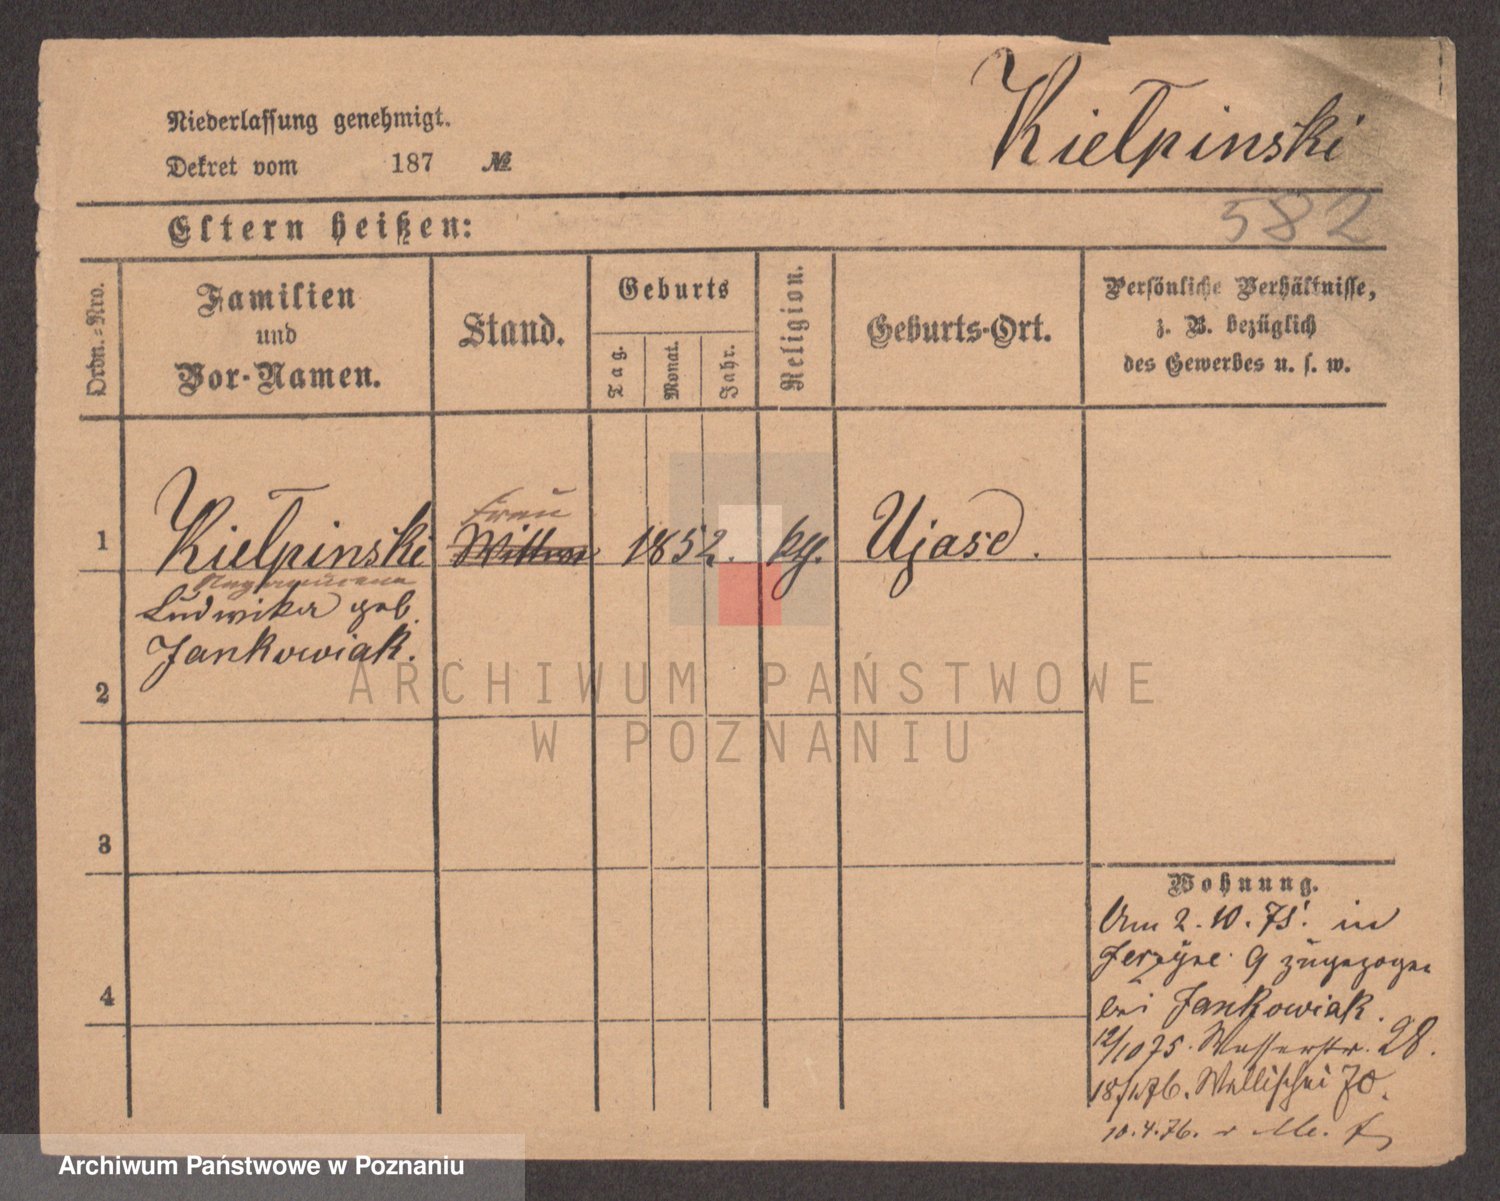 Niederlassung genehmigt.
Kiełpinski
Dekret vom 187 №
582
Eltern heißen:
Ordn.-Nro.
Familien
und
Vor-Namen.
Stand.
Geburts
Tag.
Monat.
Jahr.
Religion.
Geburts-Ort.
Persönliche Verhältnisse,
z. B. bezüglich
des Gewerbes u. s. w.
Frau
1 Kiełpinski Wittwe 1852. ktħ. Ujasd.
Ludwika geb.
Jankowiak.
2
ARCHIWUM PAŃSTWOWE
W POZNANIU
3
Wohnung.
Am 2.10.75. in
Jerzyce 9 zugezogen
bei Jankowiak.
12/10 75. Wasserstr. 28.
Wallischei 70.
10.4.76.
4
Archiwum Państwowe w Poznaniu